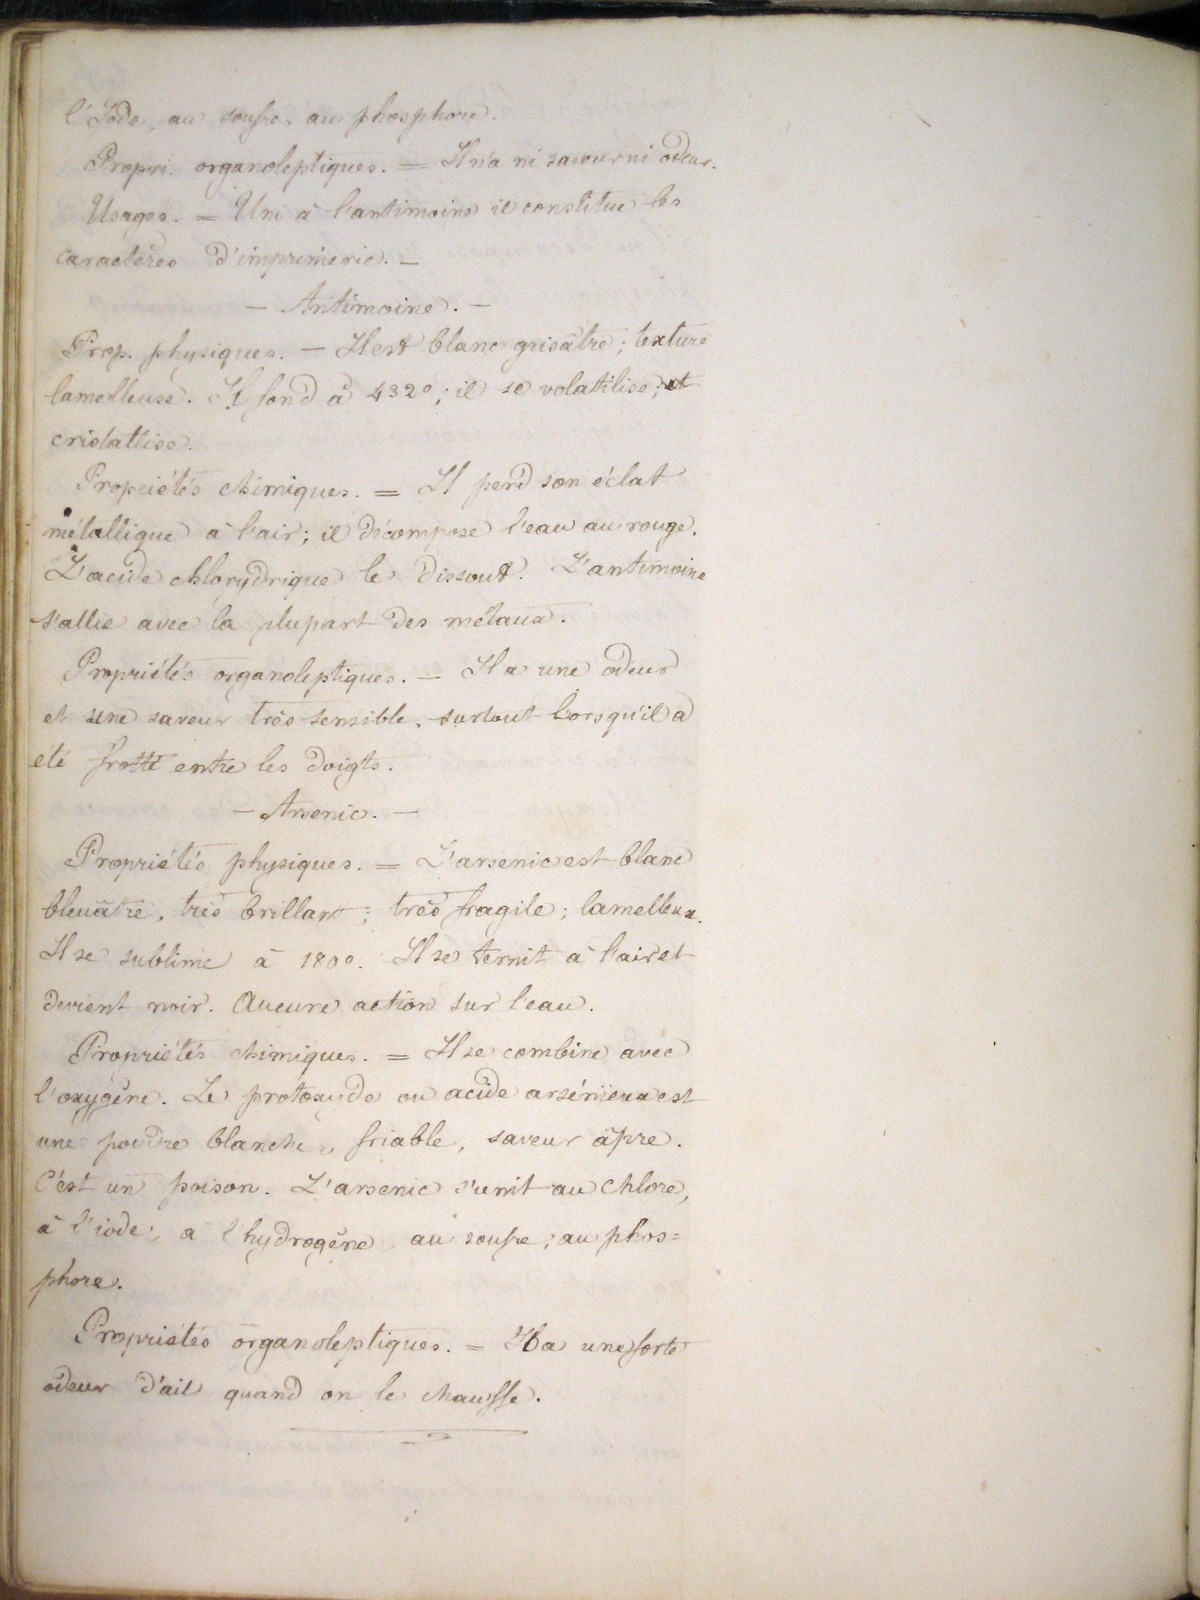 l'Iode, au soufre, au phosphore.
Propri. organoleptiques. = Il n'a ni saveur ni odeur.
Usages. = Uni à l'antimoine il constitue les
caractères d'imprimerie. —
— Antimoine. —
Prop. physiques. — Il est blanc grisâtre ; texture
lamelleuse. Il fond à 432° ; il se volatilise ; et
cristallise.
Propriétés chimiques. = Il perd son éclat
métallique à l'air ; il décompose l'eau au rouge.
L'acide chlorydrique le dissout. L'antimoine
s'allie avec la plupart des métaux.
Propriétés organoleptiques. — Il a une odeur
et une saveur très sensible, surtout lorsqu'il a
été frotté entre les doigts.
— Arsenic. —
Propriétés physiques. = L'arsenic est blanc
bleuâtre, très brillant ; très fragile ; lamelleux.
Il se sublime à 180°. Il se ternit à l'air et
devient noir. Aucune action sur l'eau.
Propriétés chimiques. = Il se combine avec
l'oxygène. Le protoxyde ou acide arsénieux est
une poudre blanche, friable, saveur âpre.
C'est un poison. L'arsenic s'unit au chlore,
à l'iode, à l'hydrogène, au soufre, au phos=
phore.
Propriétés organoleptiques. = Il a une forte
odeur d'ail quand on le chauffe.